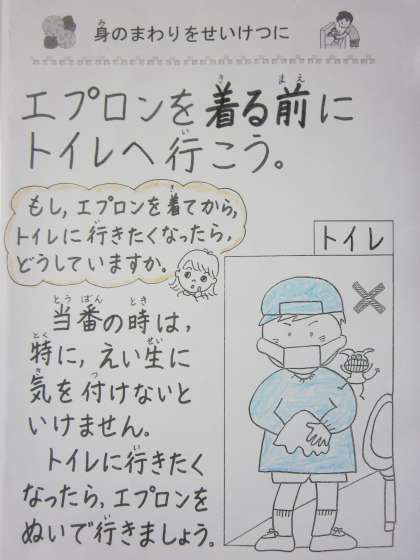 身のまわりをせいけつに
エプロンを着る前に
トイレへ行こう。
もし,エプロンを着てから,
トイレに行きたくなったら,
どうしていますか。
トイレ
当番の時は,
特に,えい生に
気を付けないと
いけません。
トイレに行きたく
なったら,エプロンを
ぬいで行きましょう。